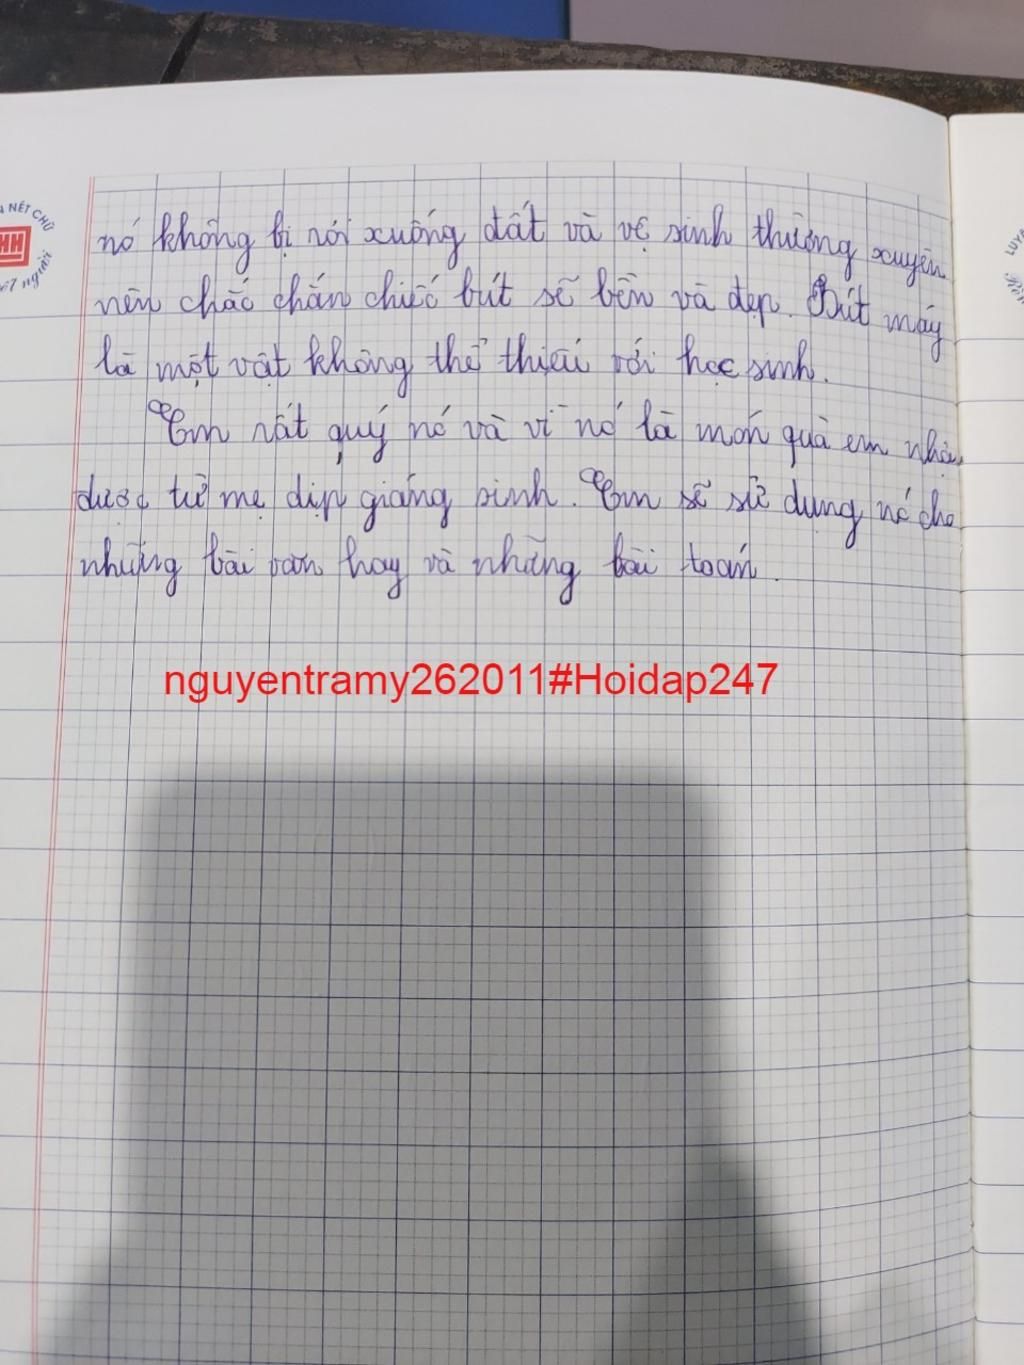 nó không bị rơi xuống đất và vệ sinh thường xuyên
nên chắc chắn chiếc bút sẽ bền và đẹp. Bút máy
là một vật không thể thiếu với học sinh.
Em rất quý nó và vì nó là món quà em nhận
được từ mẹ dịp giáng sinh. Em sẽ sử dụng nó cho
những bài văn hay và những bài toán.
nguyentramy262011#Hoidap247
NÉT CHỮ
HH
người
LUYỆN